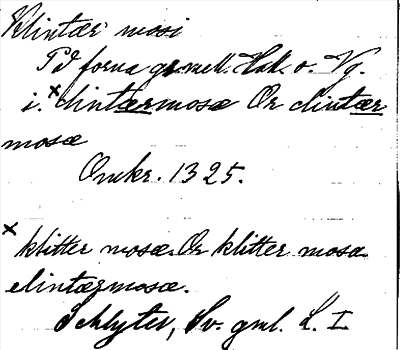 Klintær mosi
På forna gr. mell. Hal. o. Vg.
i. ˣclintærmosæ Or clintær
mosæ
Omkr. 1325.
ˣ klitter mosæ. Or klitter mosæ
elintærmosæ.
Schlyter, Sv. gml. L. I